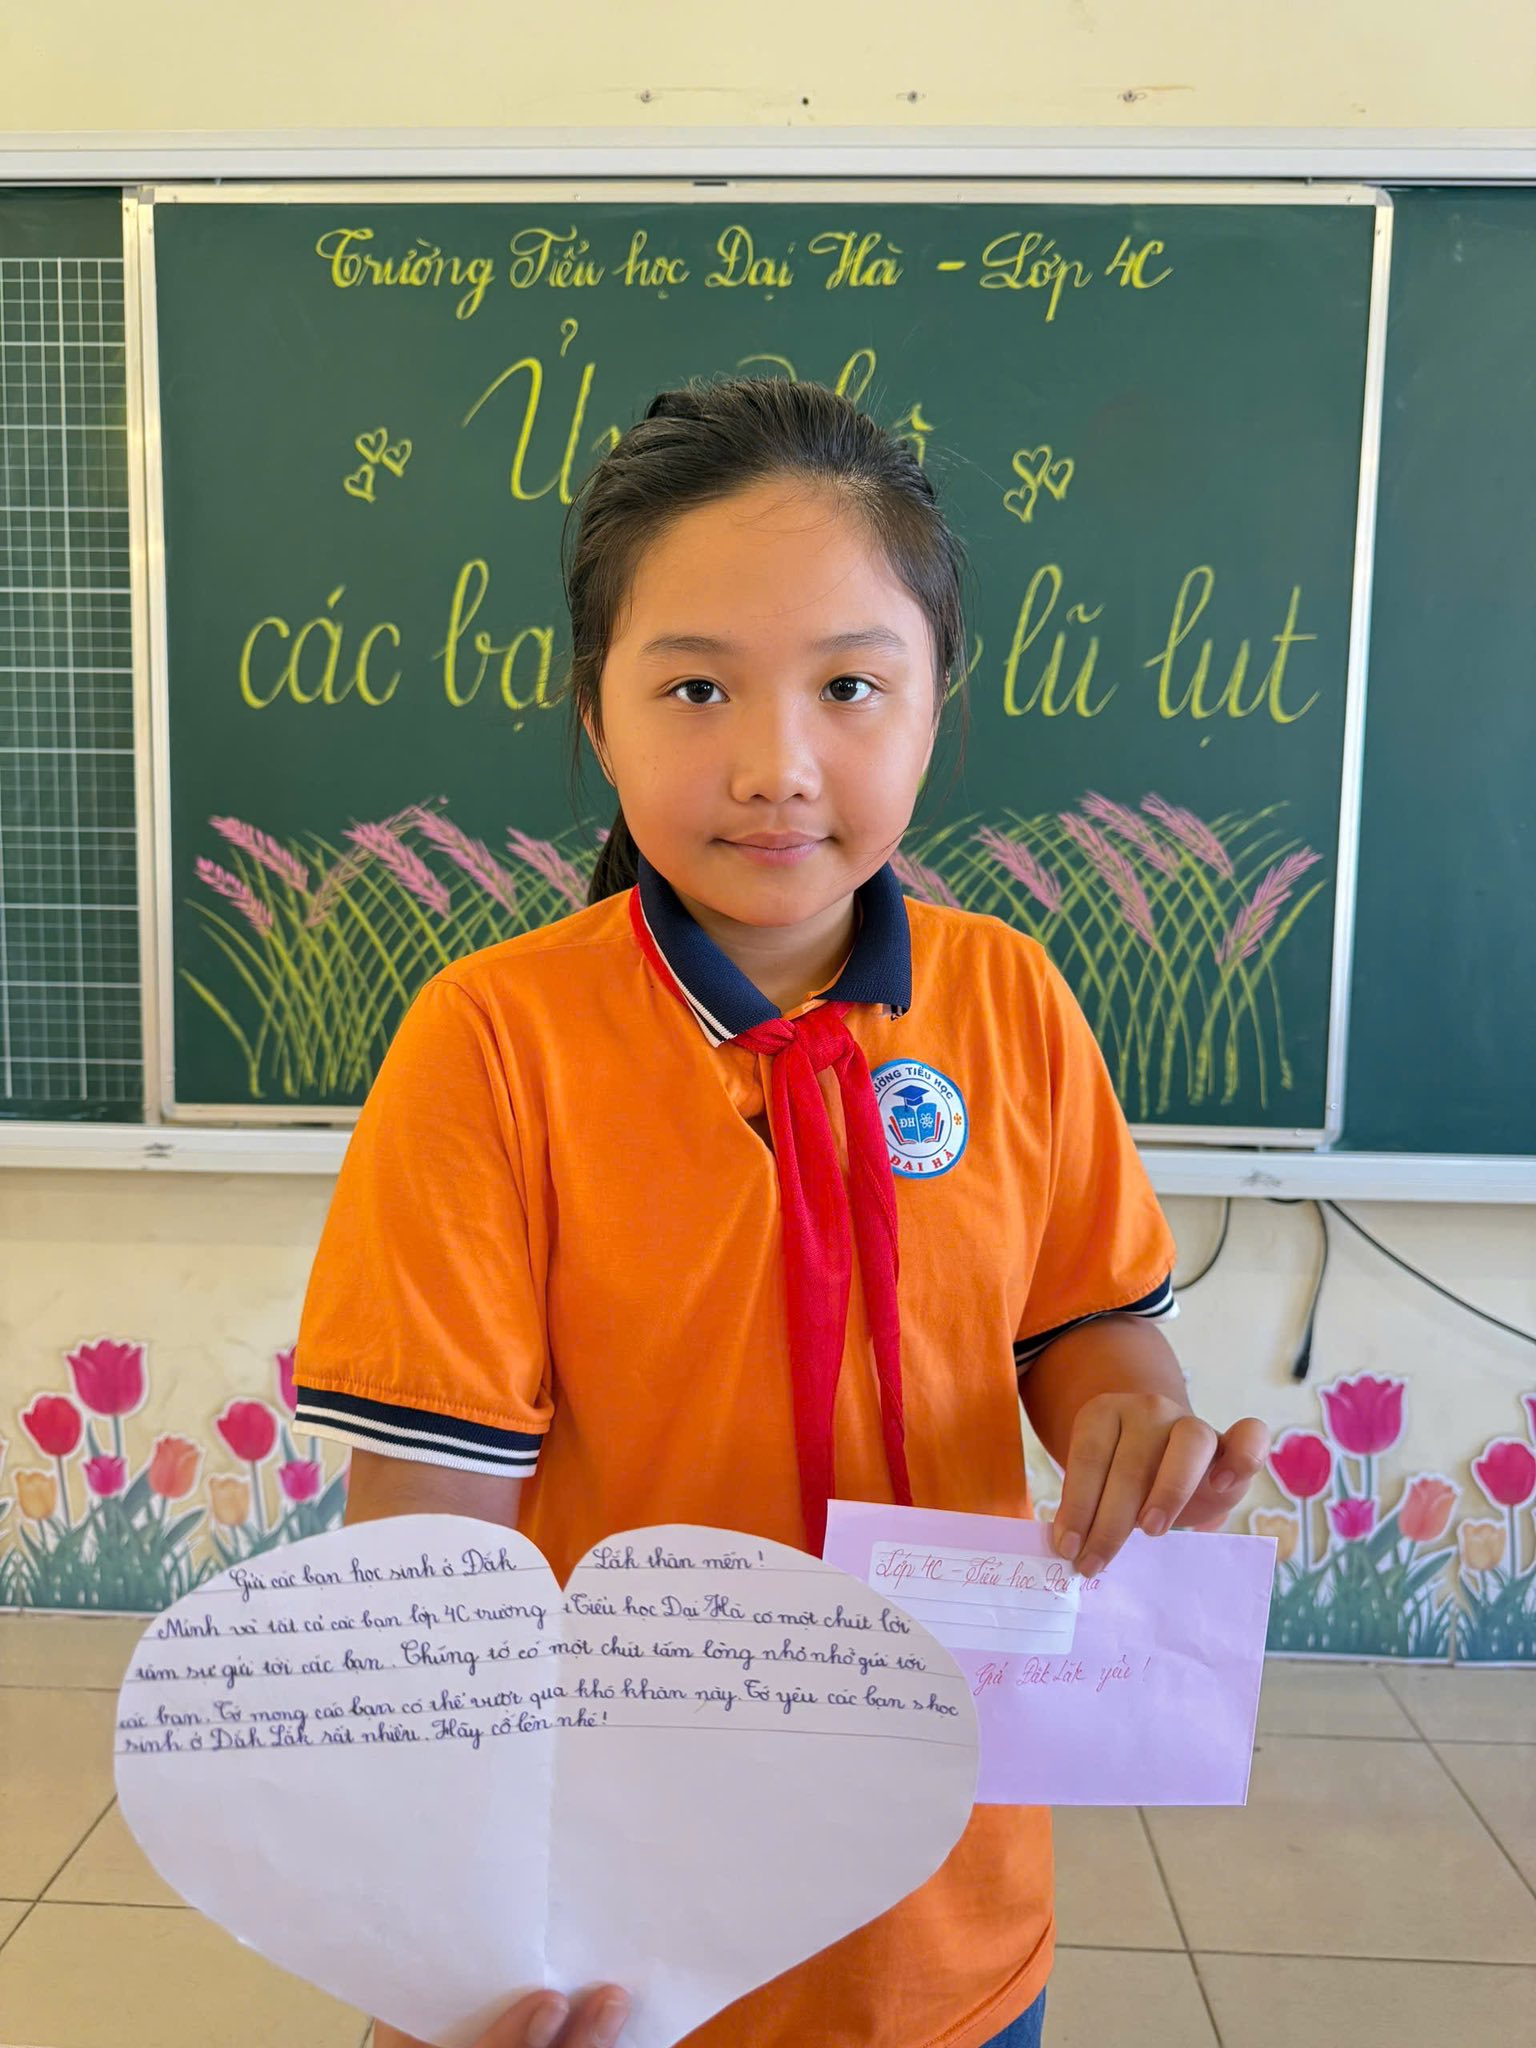 Trường Tiểu học Đại Hà - Lớp 4C
Ủn
các bạ lũ lụt
TRƯỜNG TIỂU HỌC
ĐH
ĐẠI HÀ
Gửi các bạn học sinh ở Đắk Lắk thân mến!
Mình và tất cả các bạn lớp 4C trường Tiểu học Đại Hà có một chút lời
tâm sự gửi tới các bạn. Chúng tớ có một chút tấm lòng nhỏ nhỏ gửi tới
các bạn. Tớ mong các bạn có thể vượt qua khó khăn này. Tớ yêu các bạn học
sinh ở Đắk Lắk rất nhiều. Hãy cố lên nhé!
Lớp 4C - Tiểu học Đại Hà
Gửi Đăk Lăk yêu!